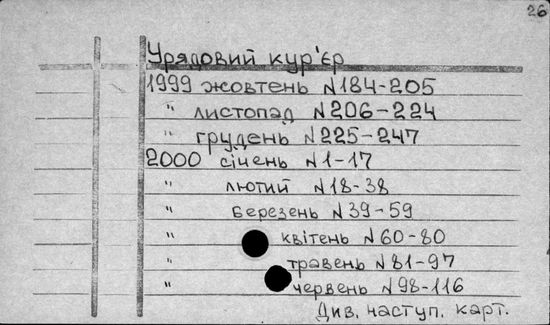 26
Урядовий кур'єр
1999 жовтень N184-205
" листопад N206-224
" грудень N225-247
2000 січень N1-17
" лютий N18-38
" березень N39-59
" квітень N60-80
" травень N81-97
" червень N98-116
Див. наступ. карт.